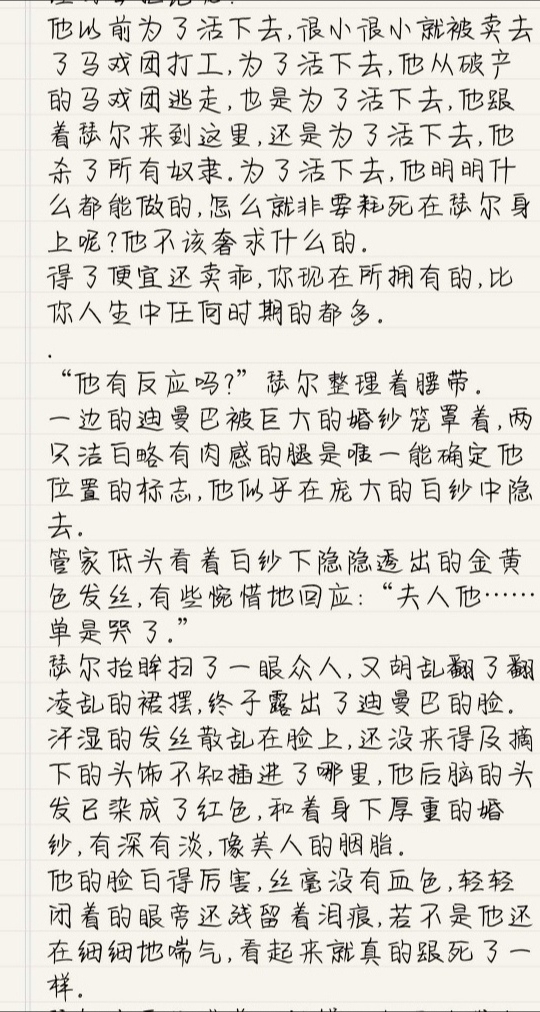 他以前为了活下去,很小很小就被卖去
了马戏团打工,为了活下去,他从破产
的马戏团逃走,也是为了活下去,他跟
着瑟尔来到这里,还是为了活下去,他
杀了所有奴隶.为了活下去,他明明什
么都能做的,怎么就非要耗死在瑟尔身
上呢?他不该奢求什么的.
得了便宜还卖乖,你现在所拥有的,比
你人生中任何时期的都多.
.
“他有反应吗?”瑟尔整理着腰带.
一边的迪曼巴被巨大的婚纱笼罩着,两
只洁白略有肉感的腿是唯一能确定他
位置的标志,他似乎在庞大的白纱中隐
去.
管家低头看着白纱下隐隐透出的金黄
色发丝,有些惋惜地回应:“夫人他……
单是哭了.”
瑟尔抬眸扫了一眼众人,又胡乱翻了翻
凌乱的裙摆,终于露出了迪曼巴的脸.
汗湿的发丝散乱在脸上,还没来得及摘
下的头饰不知插进了哪里,他后脑的头
发已染成了红色,和着身下厚重的婚
纱,有深有淡,像美人的胭脂.
他的脸白得厉害,丝毫没有血色,轻轻
闭着的眼旁还残留着泪痕,若不是他还
在细细地喘气,看起来就真的跟死了一
样.